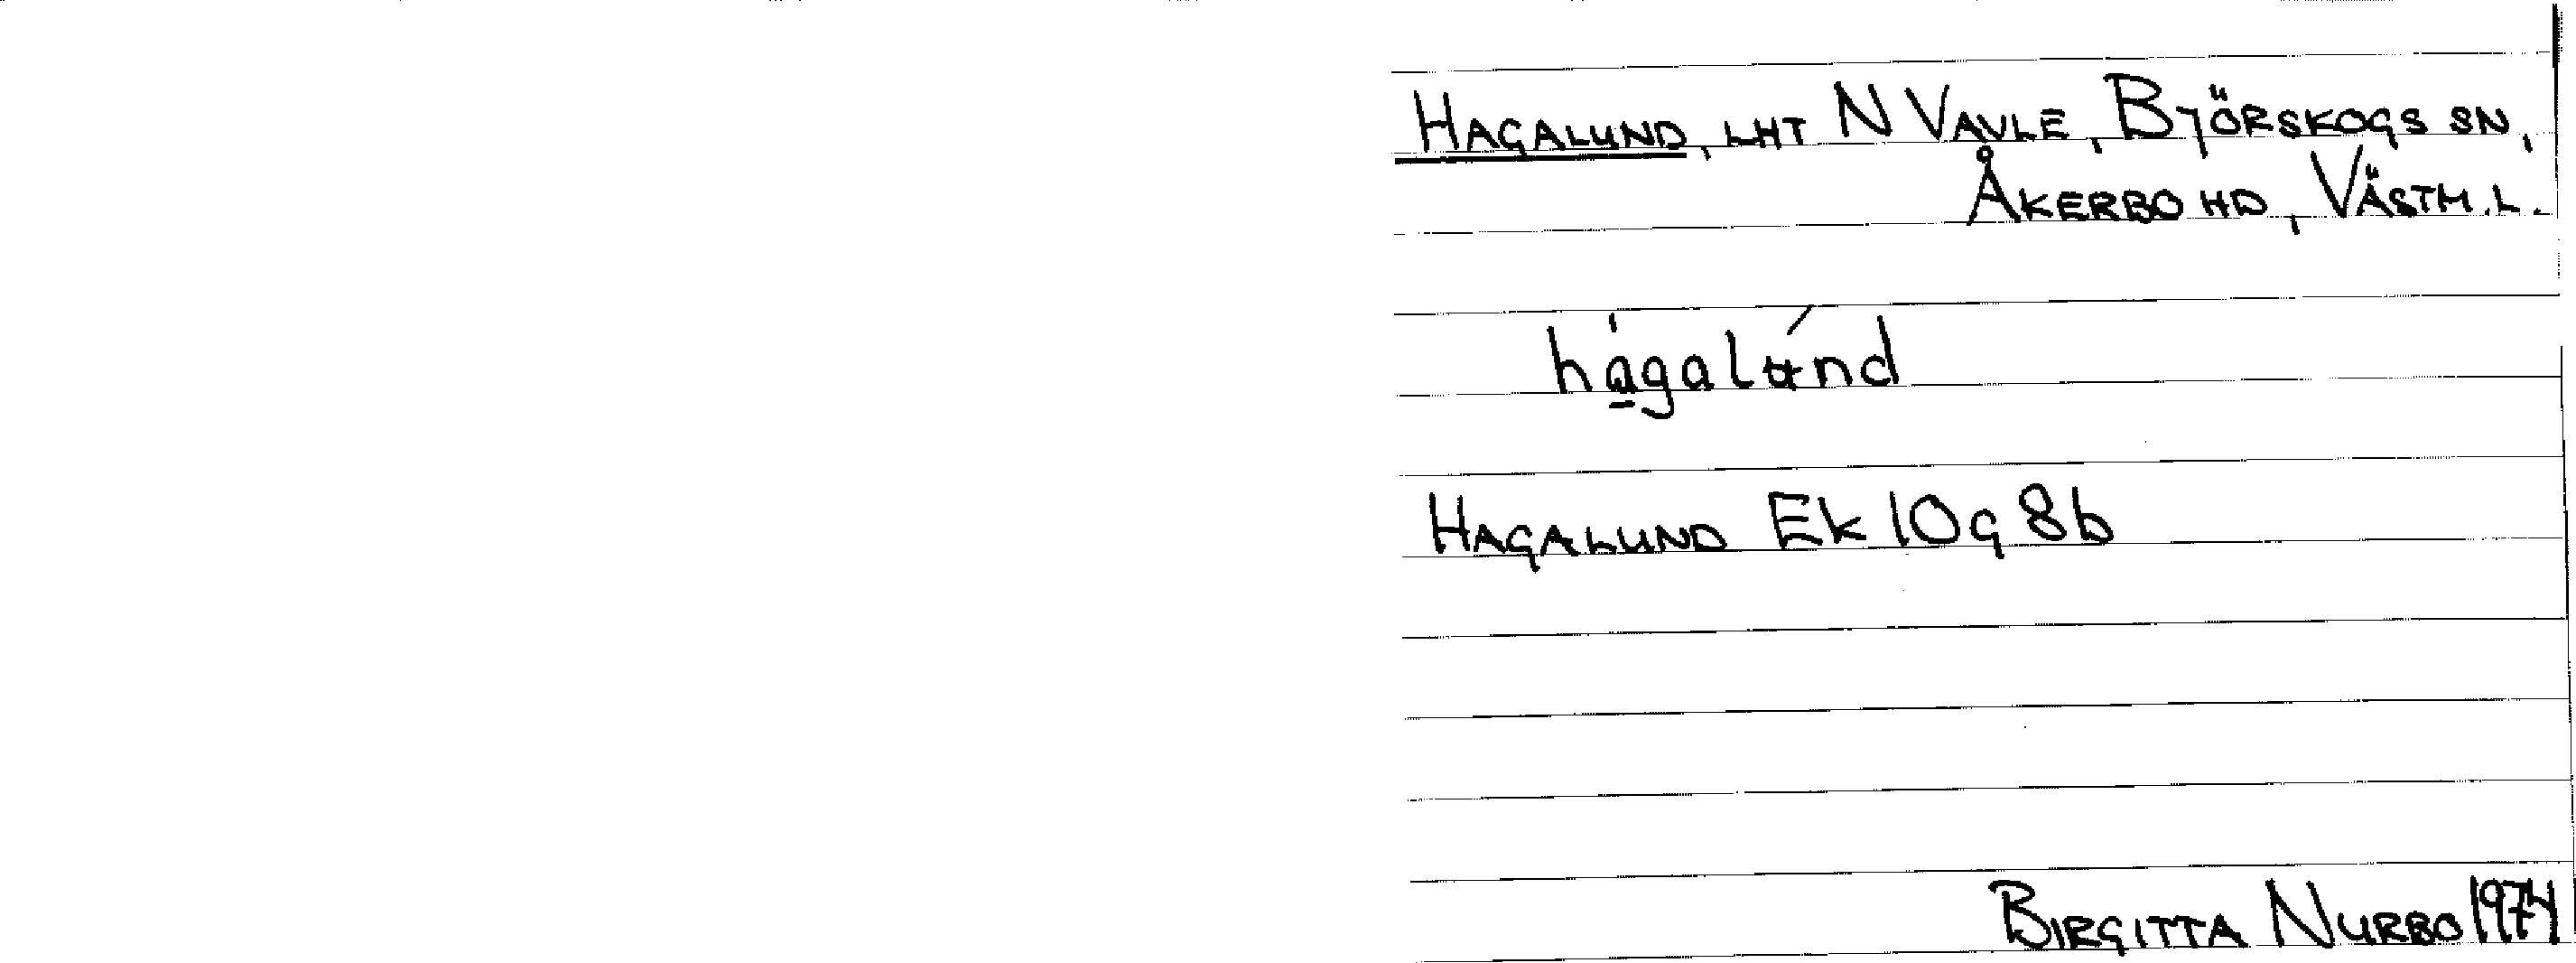 HAGALUND, LHT N VAVLE, BJÖRSKOGS SN,
ÅKERBO HD, VÄSTM.L.
hágalʉ́nd
HAGALUND Ek 10g 8b
BIRGITTA NURBO 1974